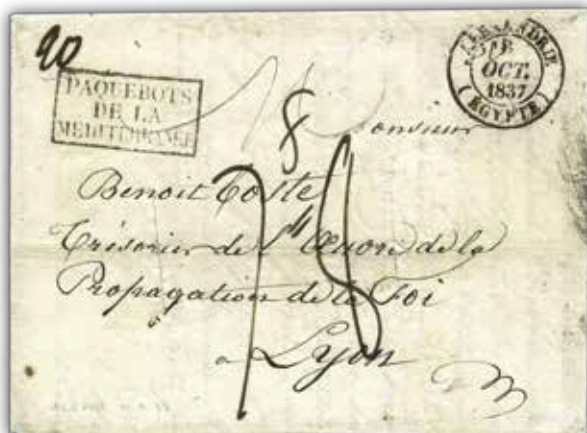 20
PAQUEBOTS
DE LA
MEDITERRANÉE
ALEXANDRIE
OCT.
1837
(EGYPTE)
8
Monsieur
Benoit Coste
Trésorier de l' de la
Propagation de la Foi
a Lyon